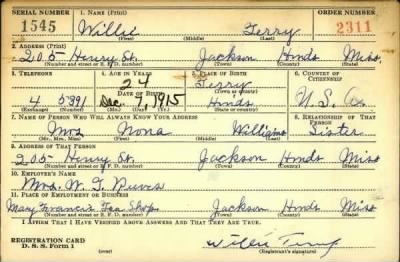 SERIAL NUMBER 1. NAME (Print) ORDER NUMBER
1545 Willie Terry 2311
(First) (Middle) (Last)
2. ADDRESS (Print)
205 Henry St. Jackson Hinds Miss.
(Number and street or R. F. D. number) (Town) (County) (State)
3. TELEPHONE 4. AGE IN YEARS 5. PLACE OF BIRTH 6. COUNTRY OF CITIZENSHIP
24 Terry
DATE OF BIRTH (Town or county)
4 5391 Dec. 9, 1915 Hinds U.S.
(Exchange) (Number) (Mo.) (Day) (Yr.) (State or country)
7. NAME OF PERSON WHO WILL ALWAYS KNOW YOUR ADDRESS 8. RELATIONSHIP OF THAT PERSON
Mrs Nona Williams Sister
(Mr., Mrs., Miss) (First) (Middle) (Last)
9. ADDRESS OF THAT PERSON
205 Henry St. Jackson Hinds Miss
(Number and street or R. F. D. number) (Town) (County) (State)
10. EMPLOYER'S NAME
Mrs. W. T.
11. PLACE OF EMPLOYMENT OR BUSINESS
Mary Francis Tea Shops Jackson Hinds Miss
(Number and street or R. F. D. number) (Town) (County) (State)
I AFFIRM THAT I HAVE VERIFIED ABOVE ANSWERS AND THAT THEY ARE TRUE.
REGISTRATION CARD Willie Terry
D. S. S. Form 1 (Registrant's signature)